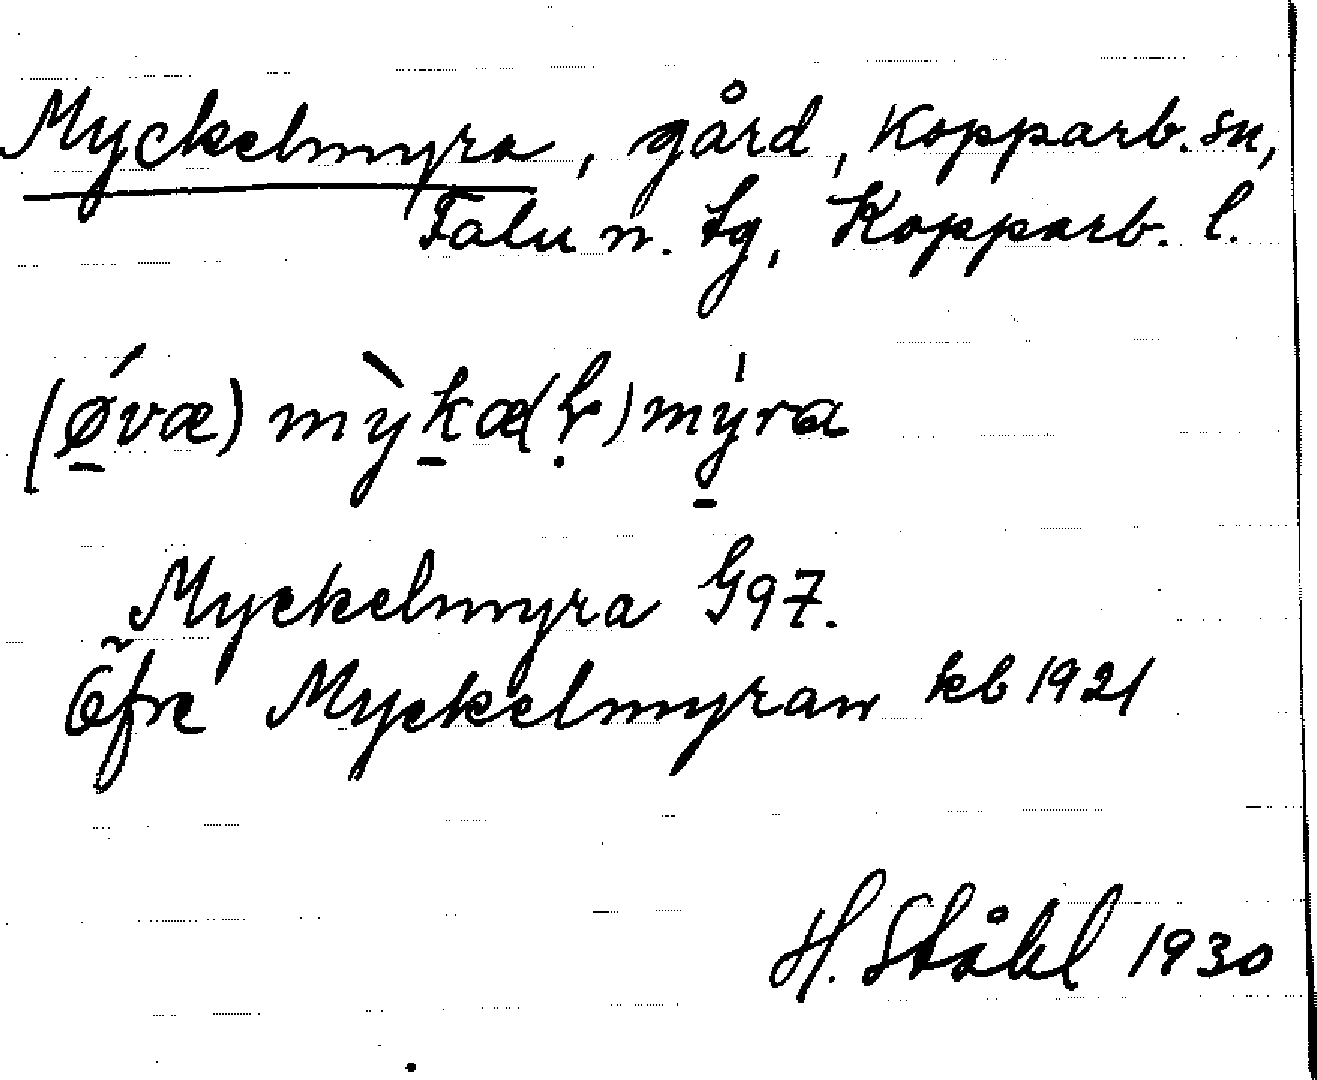 Myckelmyra, gård, Kopparb. sn,
Falu n. tg, Kopparb. l.
(ǿ̱væ) mỳḵæ(ḷ)mý̱ra
Myckelmyra G97.
Öfre Myckelmyran kb 1921
H. Ståhl 1930